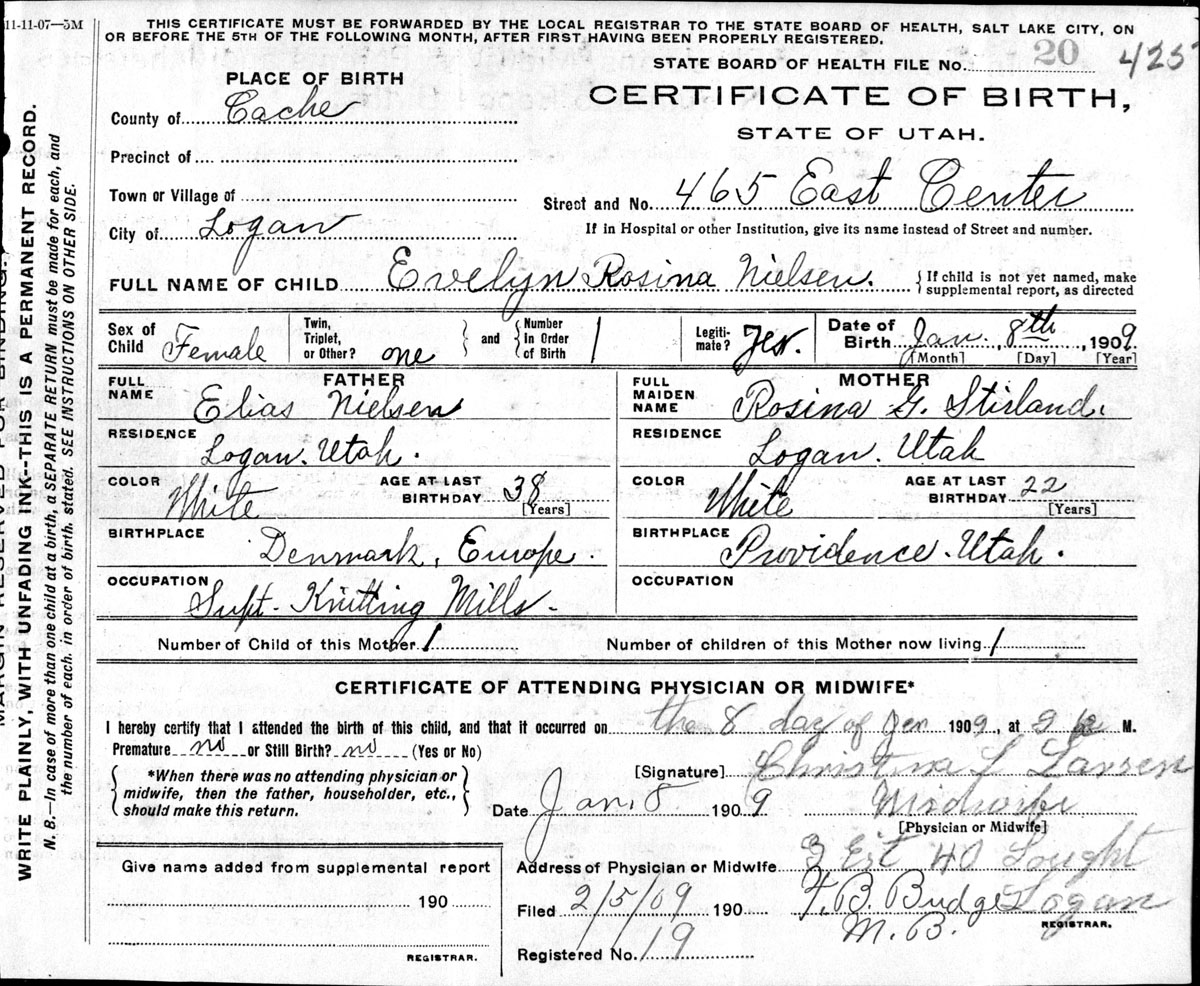 11-11-07—5M
THIS CERTIFICATE MUST BE FORWARDED BY THE LOCAL REGISTRAR TO THE STATE BOARD OF HEALTH, SALT LAKE CITY, ON
OR BEFORE THE 5TH OF THE FOLLOWING MONTH, AFTER FIRST HAVING BEEN PROPERLY REGISTERED.
STATE BOARD OF HEALTH FILE No. 20 425
PLACE OF BIRTH
CERTIFICATE OF BIRTH,
STATE OF UTAH.
County of Cache
Precinct of
Town or Village of
Street and No. 465 East Center
City of Logan
If in Hospital or other Institution, give its name instead of Street and number.
FULL NAME OF CHILD Evelyn Rosina Nielsen. { If child is not yet named, make
supplemental report, as directed
Sex of Child Female
Twin, Triplet, or Other? one } and { Number In Order of Birth 1
Legitimate? Yes.
Date of Birth Jan. 8th, 1909.
[Month] [Day] [Year]
FATHER
FULL NAME Elias Nielsen
RESIDENCE Logan. Utah.
COLOR White AGE AT LAST BIRTHDAY 38 [Years]
BIRTHPLACE Denmark, Europe.
OCCUPATION Supt. Knitting Mills.
MOTHER
FULL MAIDEN NAME Rosina G. Stirland.
RESIDENCE Logan. Utah
COLOR White AGE AT LAST BIRTHDAY 22 [Years]
BIRTHPLACE Providence. Utah.
OCCUPATION
Number of Child of this Mother 1 Number of children of this Mother now living 1
CERTIFICATE OF ATTENDING PHYSICIAN OR MIDWIFE*
I hereby certify that I attended the birth of this child, and that it occurred on the 8 day of Jen 1909, at 9 M.
Premature no or Still Birth? no (Yes or No)
{ *When there was no attending physician or
midwife, then the father, householder, etc.,
should make this return. }
[Signature] Christina L Larsen
Date Jan. 8 1909
[Physician or Midwife]
Address of Physician or Midwife 3 Est 40
Logan
Give name added from supplemental report
190
REGISTRAR.
Filed 2/5/09 190 F. B. Budge
REGISTRAR.
Registered No. 19
WRITE PLAINLY, WITH UNFADING INK--THIS IS A PERMANENT RECORD.
N. B.—In case of more than one child at a birth, a SEPARATE RETURN must be made for each, and
the number of each, in order of birth, stated. SEE INSTRUCTIONS ON OTHER SIDE.